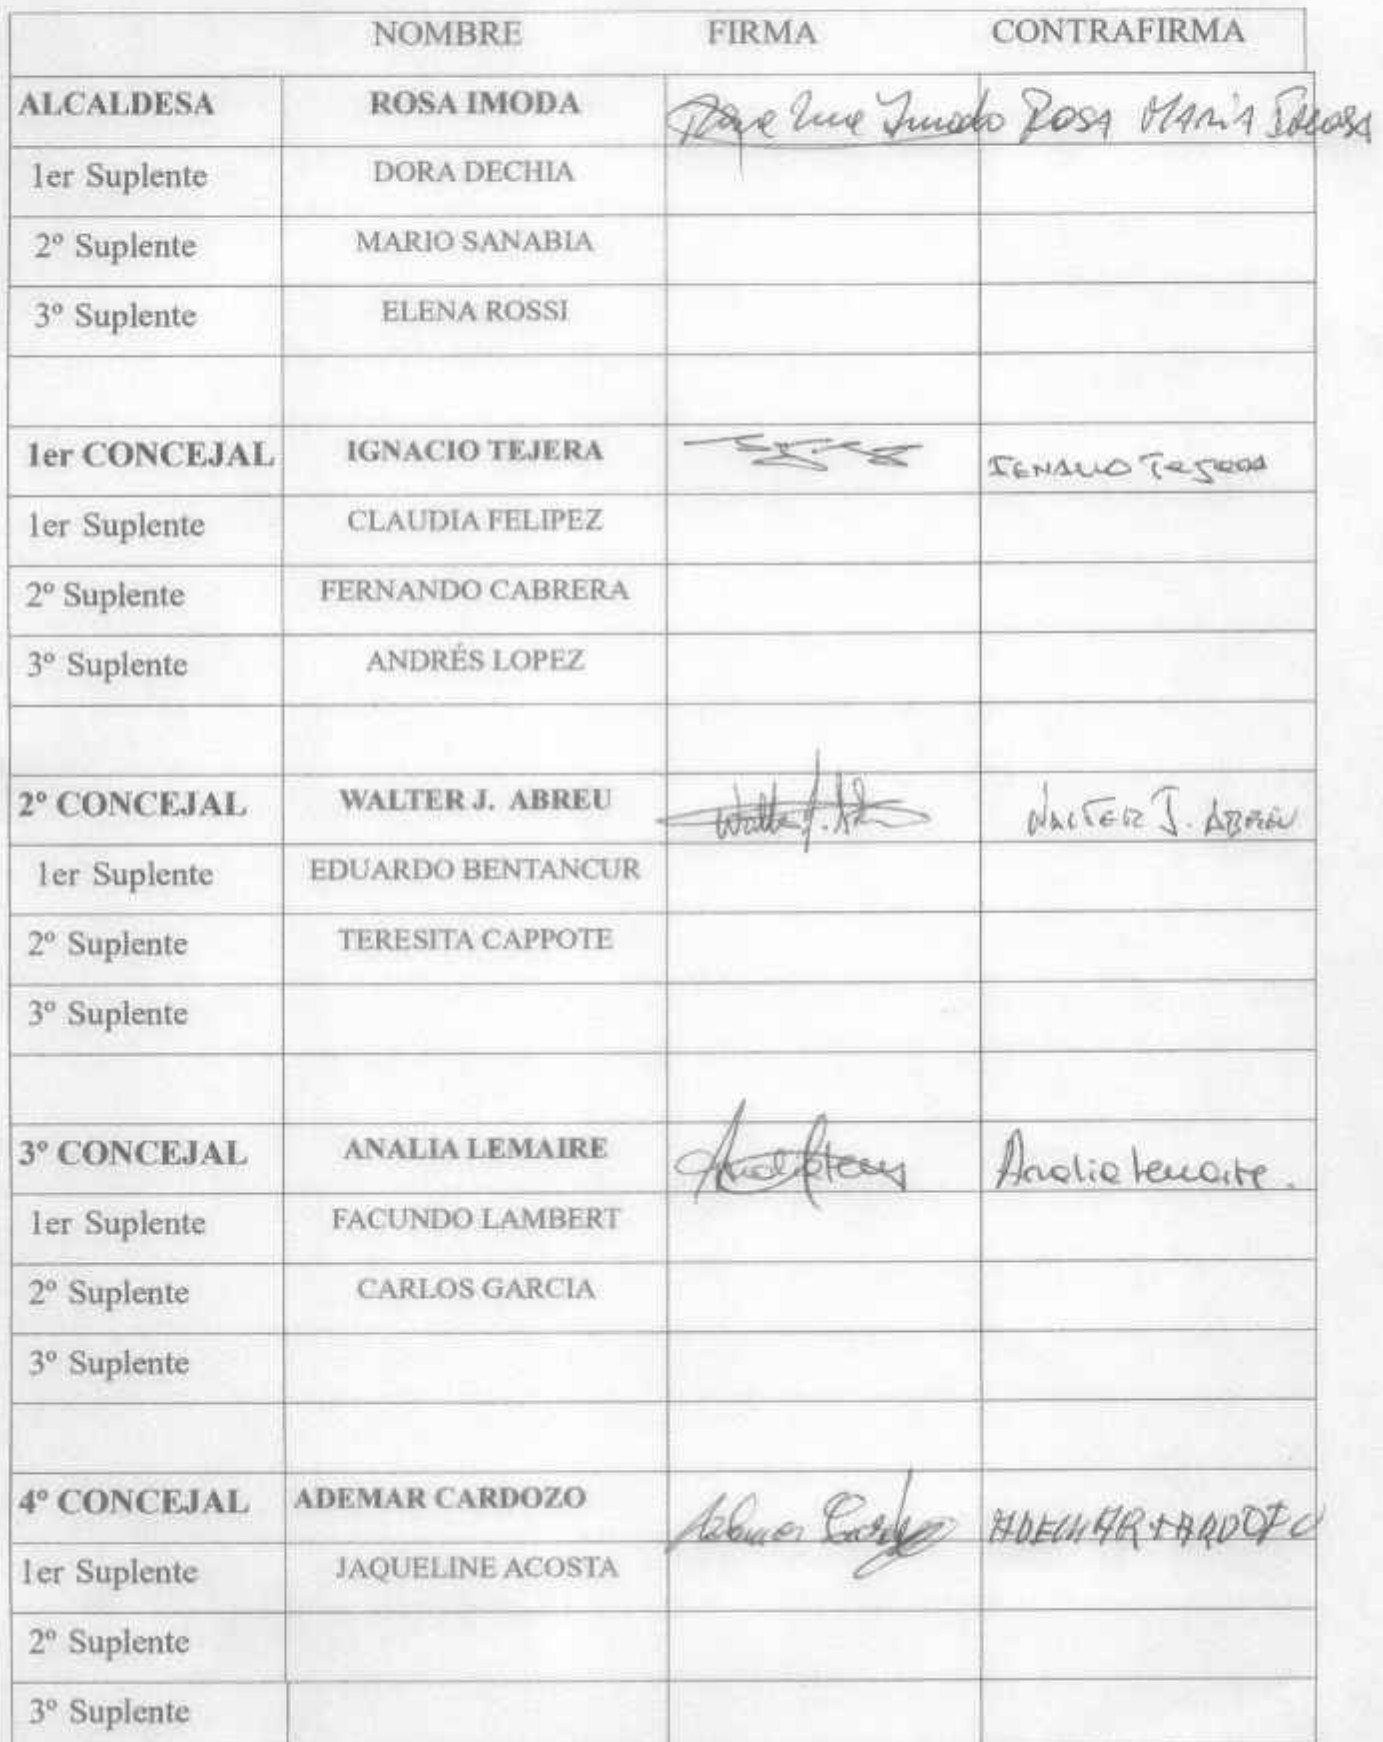 NOMBRE FIRMA CONTRAFIRMA
ALCALDESA ROSA IMODA Rosa Imoda ROSA MARIA IMODA
1er Suplente DORA DECHIA
2º Suplente MARIO SANABIA
3º Suplente ELENA ROSSI
1er CONCEJAL IGNACIO TEJERA IGNACIO TEJERA
1er Suplente CLAUDIA FELIPEZ
2º Suplente FERNANDO CABRERA
3º Suplente ANDRÉS LOPEZ
2º CONCEJAL WALTER J. ABREU Walter J. WALTER J. ABREU
1er Suplente EDUARDO BENTANCUR
2º Suplente TERESITA CAPPOTE
3º Suplente
3º CONCEJAL ANALIA LEMAIRE Analia Lemaire.
1er Suplente FACUNDO LAMBERT
2º Suplente CARLOS GARCIA
3º Suplente
4º CONCEJAL ADEMAR CARDOZO Ademar Cardozo ADEMAR CARDOZO
1er Suplente JAQUELINE ACOSTA
2º Suplente
3º Suplente